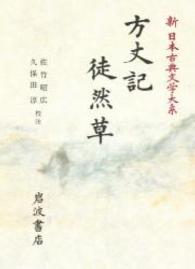 新 日本古典文学大系
方丈記
徒然草
佐竹昭広
久保田 淳 校注
岩波書店